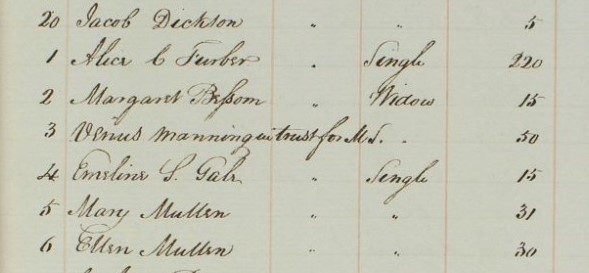 20 Jacob Dickson " " 5
1 Alice C Furber " Single 220
2 Margaret Bessom " Widow 15
3 Venus Manning in trust for M S. " 50
4 Emeline S. Gale " Single 15
5 Mary Mullen " " 31
6 Ellen Mullen " " 30